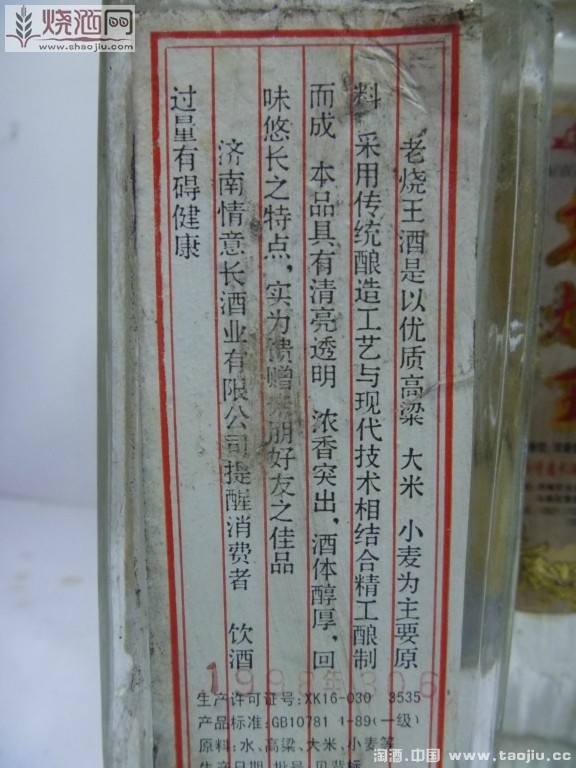 烧酒网
www.shaojiu.com
老烧王酒是以优质高粱 大米 小麦为主要原
料 采用传统酿造工艺与现代技术相结合精工酿制
而成 本品具有清亮透明 浓香突出,酒体醇厚,回
味悠长之特点,实为馈赠 朋好友之佳品
济南情意长酒业有限公司提醒消费者 饮酒
过量有碍健康
生产许可证号:XK16-030 3535
产品标准:GB10781 1-89(一级)
原料:水、高粱、大米、小麦等
生产日期 批号 见背标
淘酒.中国 www.taojiu.cc